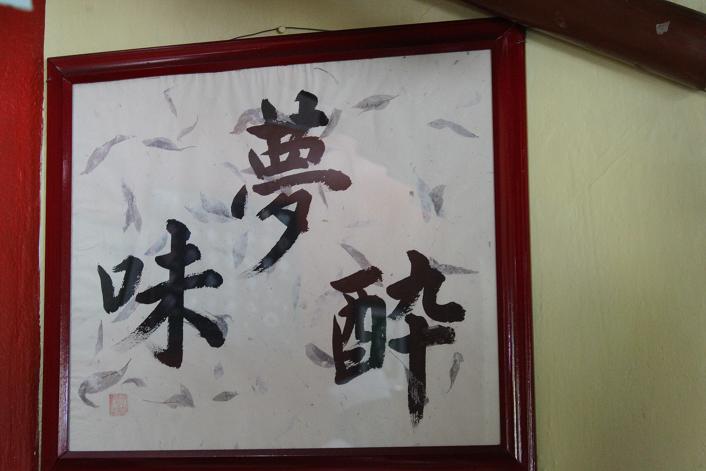 酔
夢
味